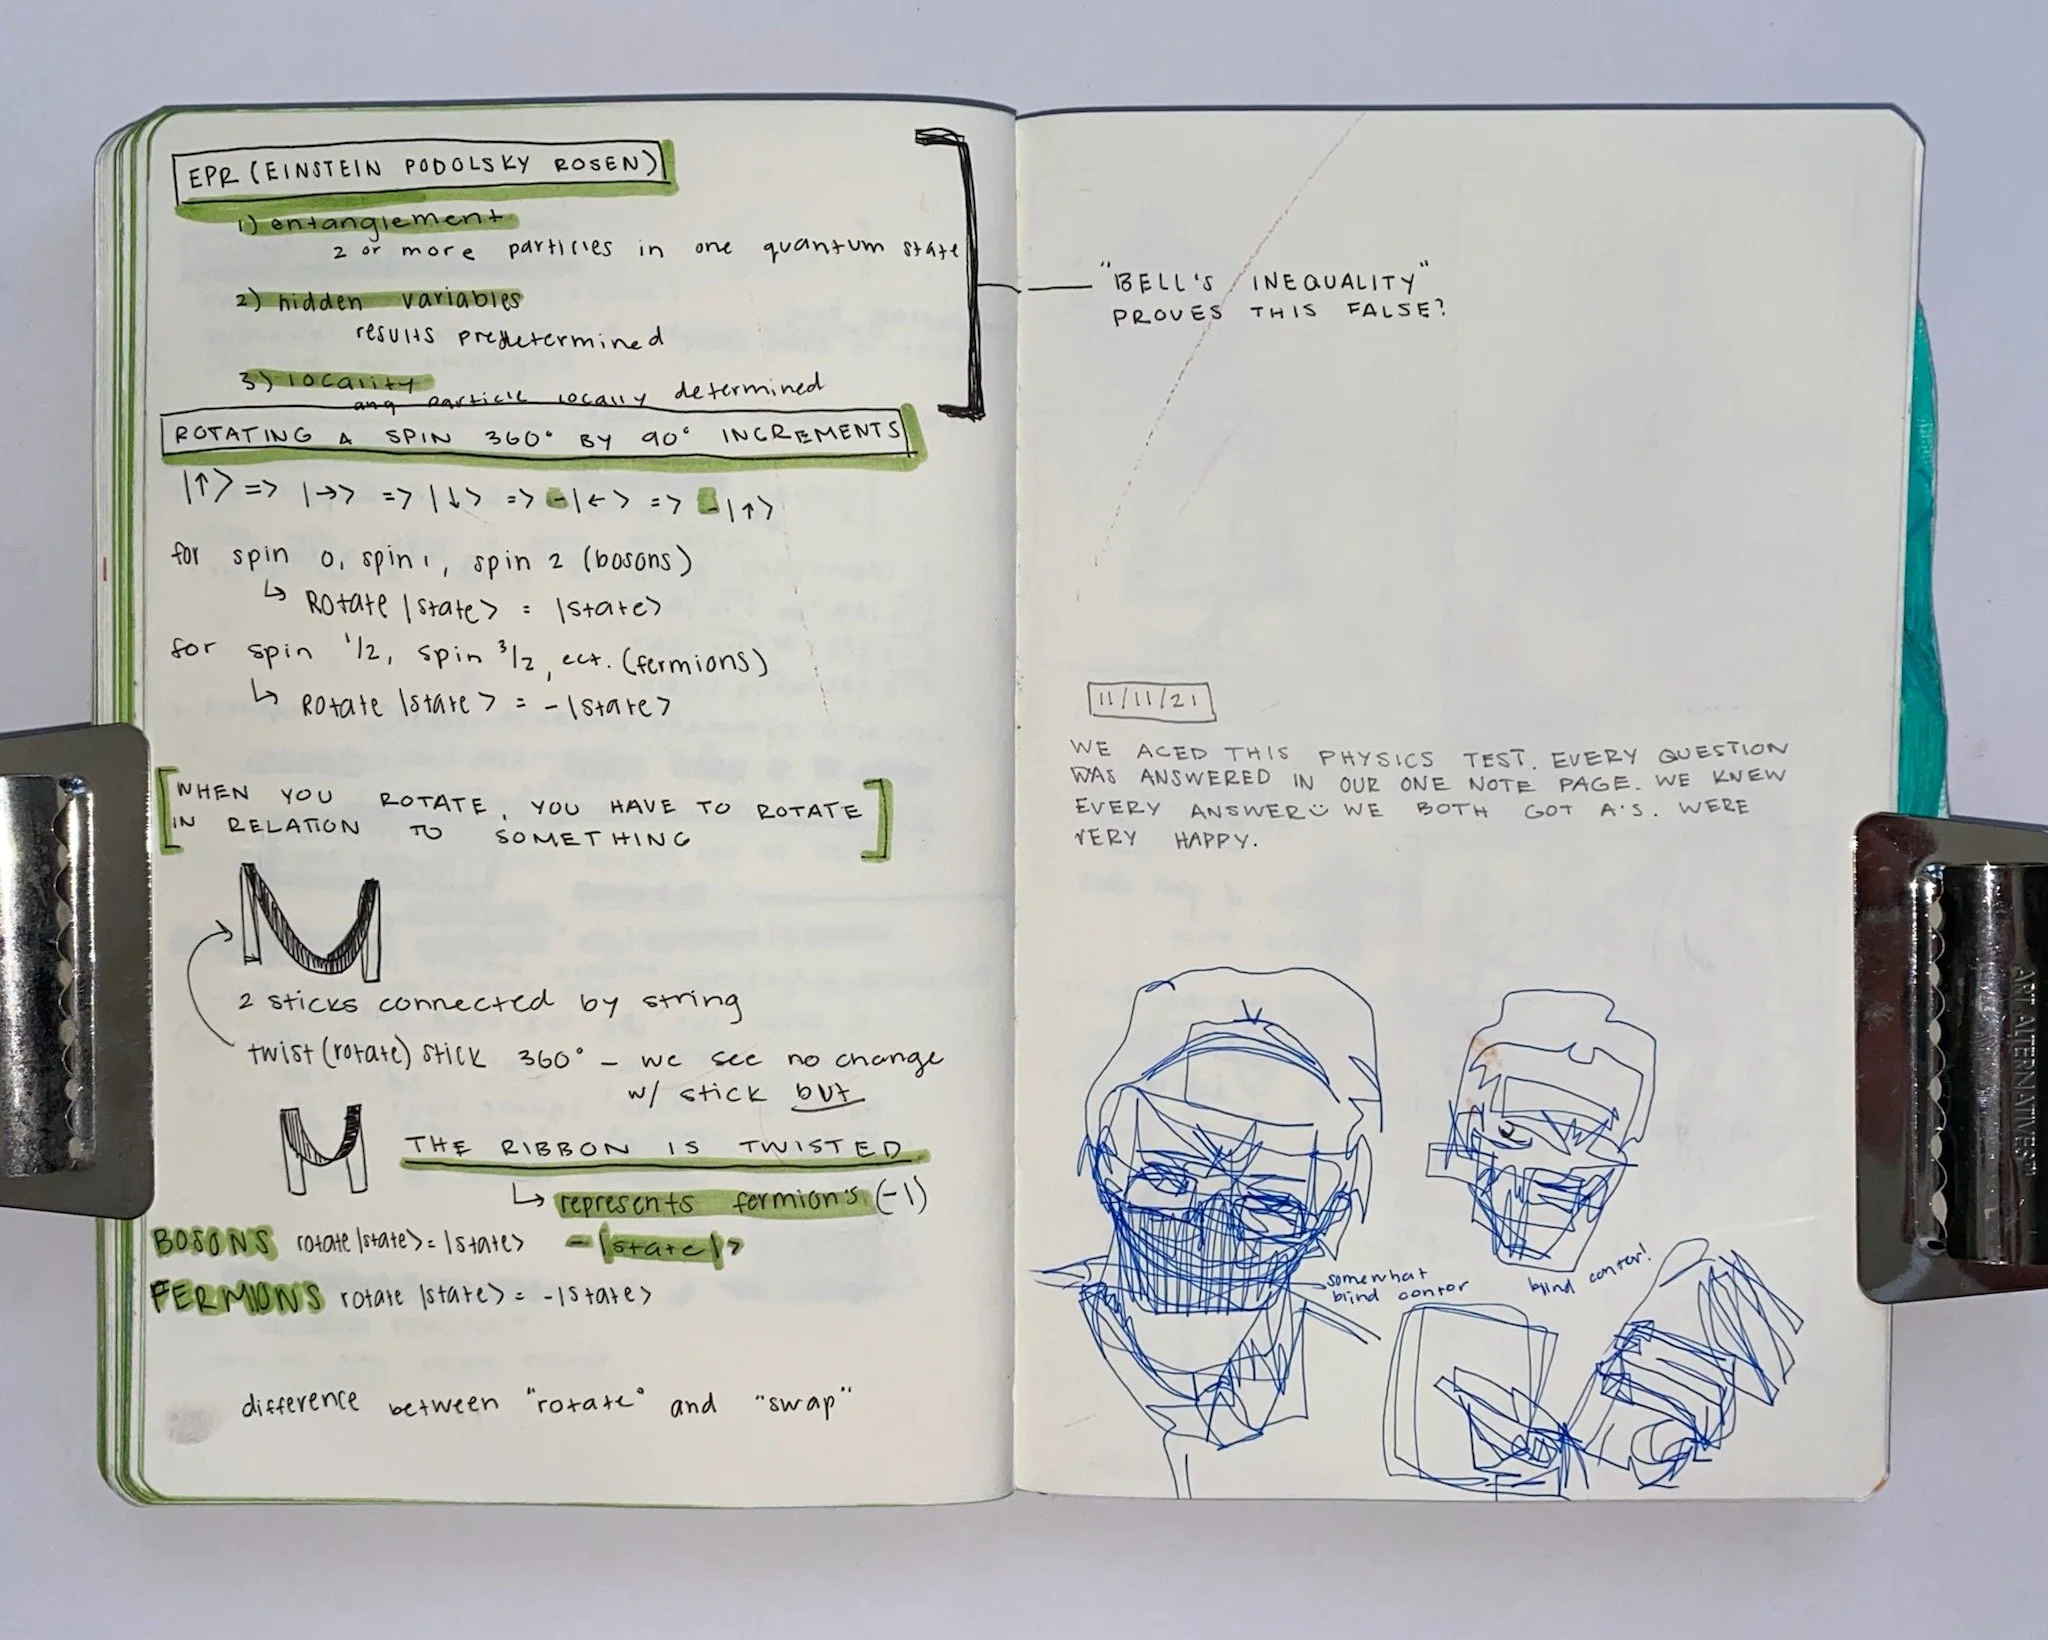 EPR (EINSTEIN PODOLSKY ROSEN)
1) entanglement
2 or more particles in one quantum state
2) hidden variables
results predetermined
3) locality
any particle locally determined
ROTATING A SPIN 360° BY 90° INCREMENTS
|↑> => |→> => |↓> => -|←> => -|↑>
for spin 0, spin 1, spin 2 (bosons)
↳ Rotate |state> = |state>
for spin 1/2, spin 3/2, ect. (fermions)
↳ Rotate |state> = -|state>
[WHEN YOU ROTATE, YOU HAVE TO ROTATE
IN RELATION TO SOMETHING]
2 sticks connected by string
twist (rotate) stick 360° - we see no change
w/ stick but
THE RIBBON IS TWISTED
↳ represents fermion's (-1)
BOSONS rotate |state> = |state> -|state|>
FERMIONS rotate |state> = -|state>
difference between "rotate" and "swap"
"BELL'S INEQUALITY"
PROVES THIS FALSE?
11/11/21
WE ACED THIS PHYSICS TEST. EVERY QUESTION
WAS ANSWERED IN OUR ONE NOTE PAGE. WE KNEW
EVERY ANSWER☺ WE BOTH GOT A'S. WERE
VERY HAPPY.
somewhat
blind contor
blind contor!
ART ALTERNATIVES™